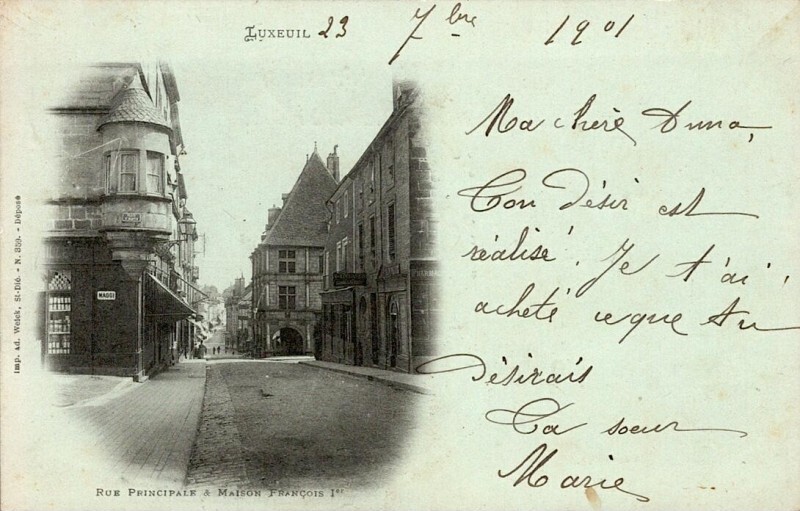 LUXEUIL 23 7bre 1901
Ma chère Anna,
Ton désir est
réalisé. Je t'ai
acheté ce que tu
désirais
Ta soeur
Marie
MAGGI
PHARMACIE
Imp. Ad. Weick, St-Dié. - N. 359. - Déposé
RUE PRINCIPALE & MAISON FRANÇOIS Ier